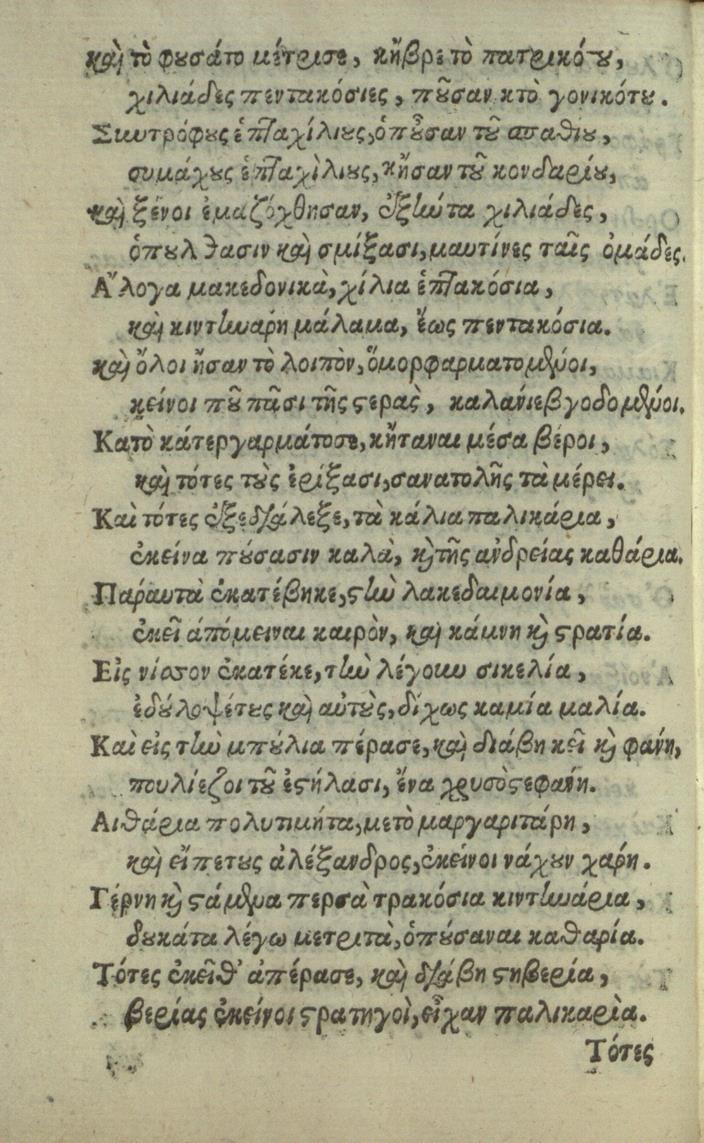 καὶ τὸ φουσάτο μέτρισε, κηὗβρε τὸ πατρικότου,
χιλιάδες πεντακόσιες, ποῦσαν κτὸ γονικότου.
Σκυτρόφους ἑπταχίλιους, ὁποὖσαν τοῦ σπαθιοῦ,
συμάχους ἑπταχίλιους, κῆσαν τοῦ κονδαρίου,
καὶ ξένοι ἐμαζόχθησαν, ἐξῶτα χιλιάδες,
ὁπουλθασιν καὶ σμίξασι, μαυτίνες ταῖς ὁμάδες.
Ἄλογα μακεδονικὰ, χίλια ἑπτακόσια,
καὶ κιντηνάρη μάλαμα, ἕως πεντακόσια.
καὶ ὅλοι ἦσαν τὸ λοιπὸν, ὅμορφαρματομένοι,
κείνοι ποῦ πᾶσι τῆς στερὰς, καλανίεβγοδομένοι.
Κατὸ κάτεργαρμάτοσε, κήταναι μέσα βέροι,
καὶ τότες τοὺς ἐρίξασι, σανατολῆς τὰ μέρει.
Καὶ τότες ἐξεδιάλεξε, τὰ κάλια παλικάρια,
ἐκείνα πούσασιν καλὰ, καὶ τῆς ἀνδρείας καθάρια.
Παραυτὰ ἐκατέβηκε, στὴν λακεδαιμονία,
ἐκεῖ ἀπόμειναι καιρὸν, καὶ κάμνη καὶ στρατία.
Εἰς νίσσον ἐκατέκε, τὴν λέγουν σικελία,
ἐδούλοψέτους καὶ αὐτοὺς, δίχως καμία μαλία.
Καὶ εἰς τὴν μπούλια πέρασε, καὶ διάβη κεῖ καὶ φανη,
πουλιεζοι τοῦ ἐστήλασι, ἕνα χρυσὸ στεφανη.
Λιθάρια πολυτιμήτα, μετὸ μαργαριτάρη,
καὶ εἴπετους ἀλέξανδρος, ἐκείνοι νάχουν χαρη.
Γέρνη καὶ στάμενα περσὰ τρακόσια κιντηνάρια,
δουκάτα λέγω μετριτὰ, ὁπούσαναι καθαρία.
Τότες ἐκεῖθ' ἀπέρασε, καὶ διάβη στηβερία,
βερίας ἐκείνοι στρατηγοὶ, εἶχαν παλικαρία.
Τότες